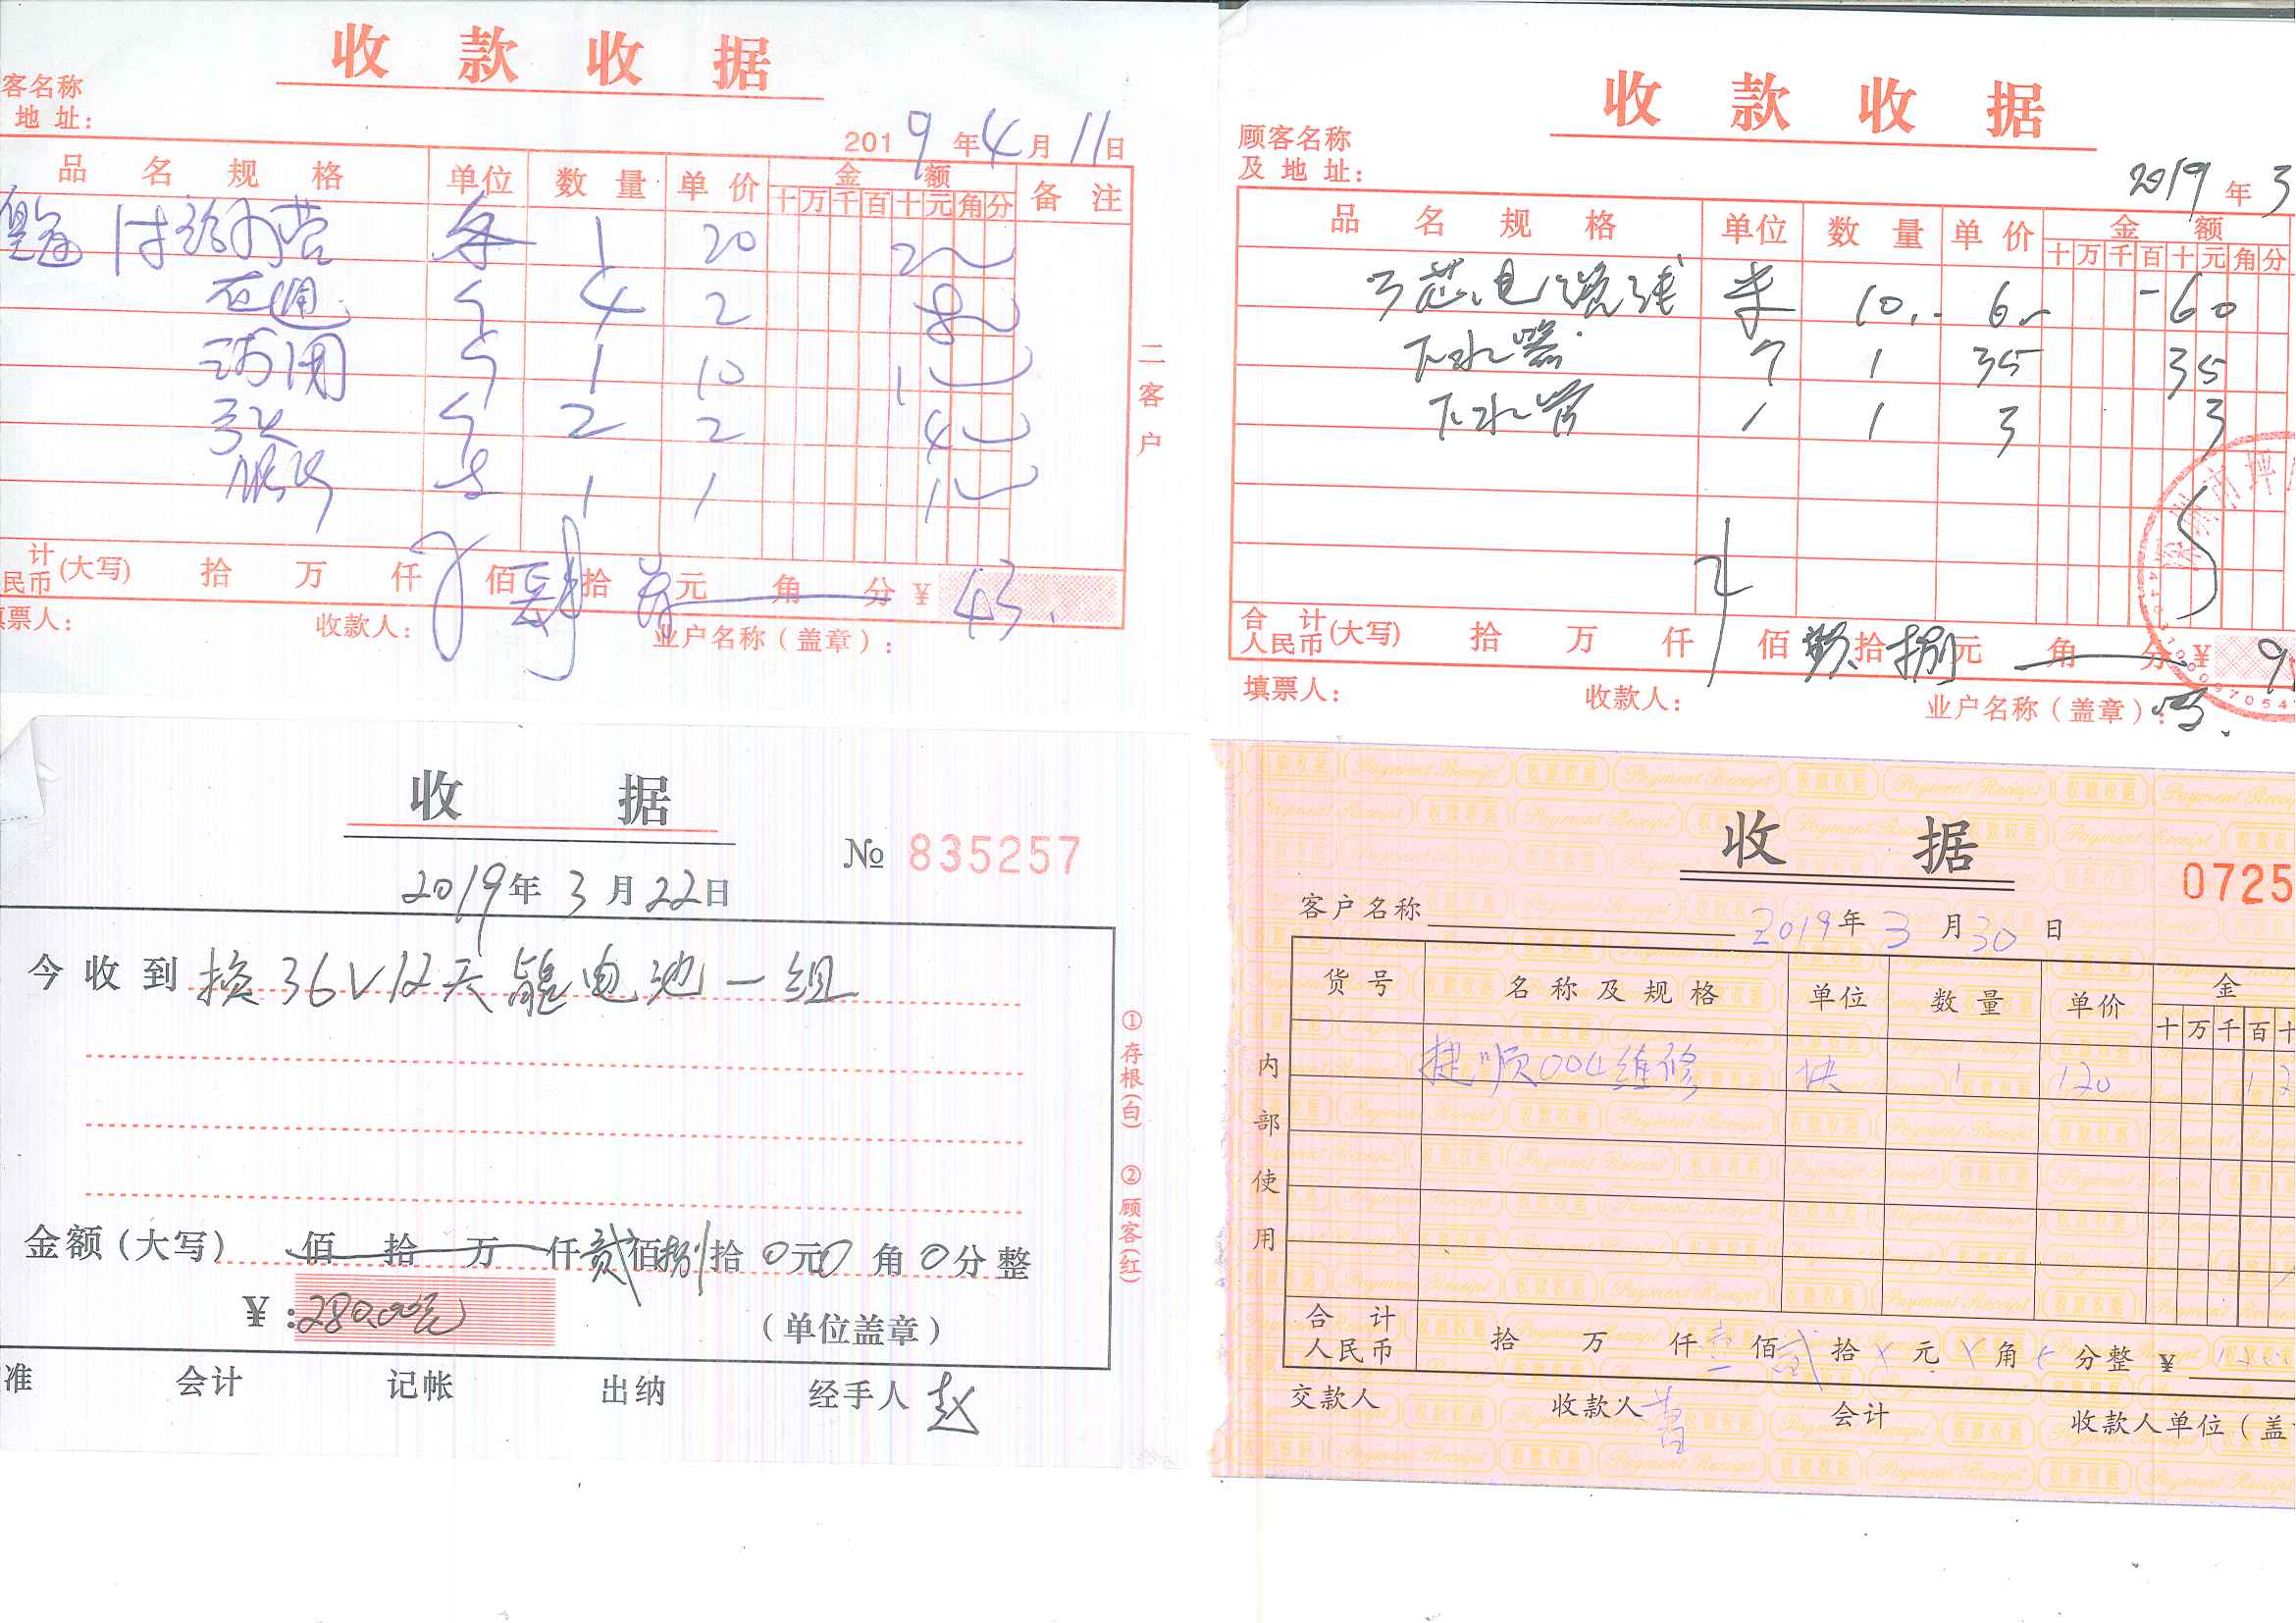 收款收据
客名称
地址：
2019年4月11日
品名规格 单位 数量 单价 金额 备注
十万千百十元角分
1 20 2
4 2 8
1 10 1
弯头 2 2 4
1 1 1
计
民币(大写) 拾 万 仟 佰肆拾叁元角分 ¥ 43.
票人： 收款人： 业户名称（盖章）：
二客户
收款收据
顾客名称
及地址：
2019年3
品名规格 单位 数量 单价 金额
十万千百十元角分
3芯电缆线 米 10 6 60
下水器 个 1 35 35
下水管 1 1 3 3
合计
人民币(大写) 拾 万 仟 佰 玖拾捌元角分 ¥ 9
填票人： 收款人： 业户名称（盖章）：
深圳市坪
收据
№ 835257
2019年3月22日
今收到换36V12天能电池一组
金额(大写) 佰拾万仟贰佰捌拾0元0角0分整
¥:280.00元
(单位盖章)
准 会计 记帐 出纳 经手人 赵
①存根(白) ②顾客(红)
收据
0725
客户名称 2019年3月30日
货号 名称及规格 单位 数量 单价 金
十万千百十
捷顺004维修 块 1 120 1 2
合计
人民币 拾 万 仟壹佰贰拾 元 角 分整 ¥
交款人 收款人 会计 收款人单位（盖
内部使用